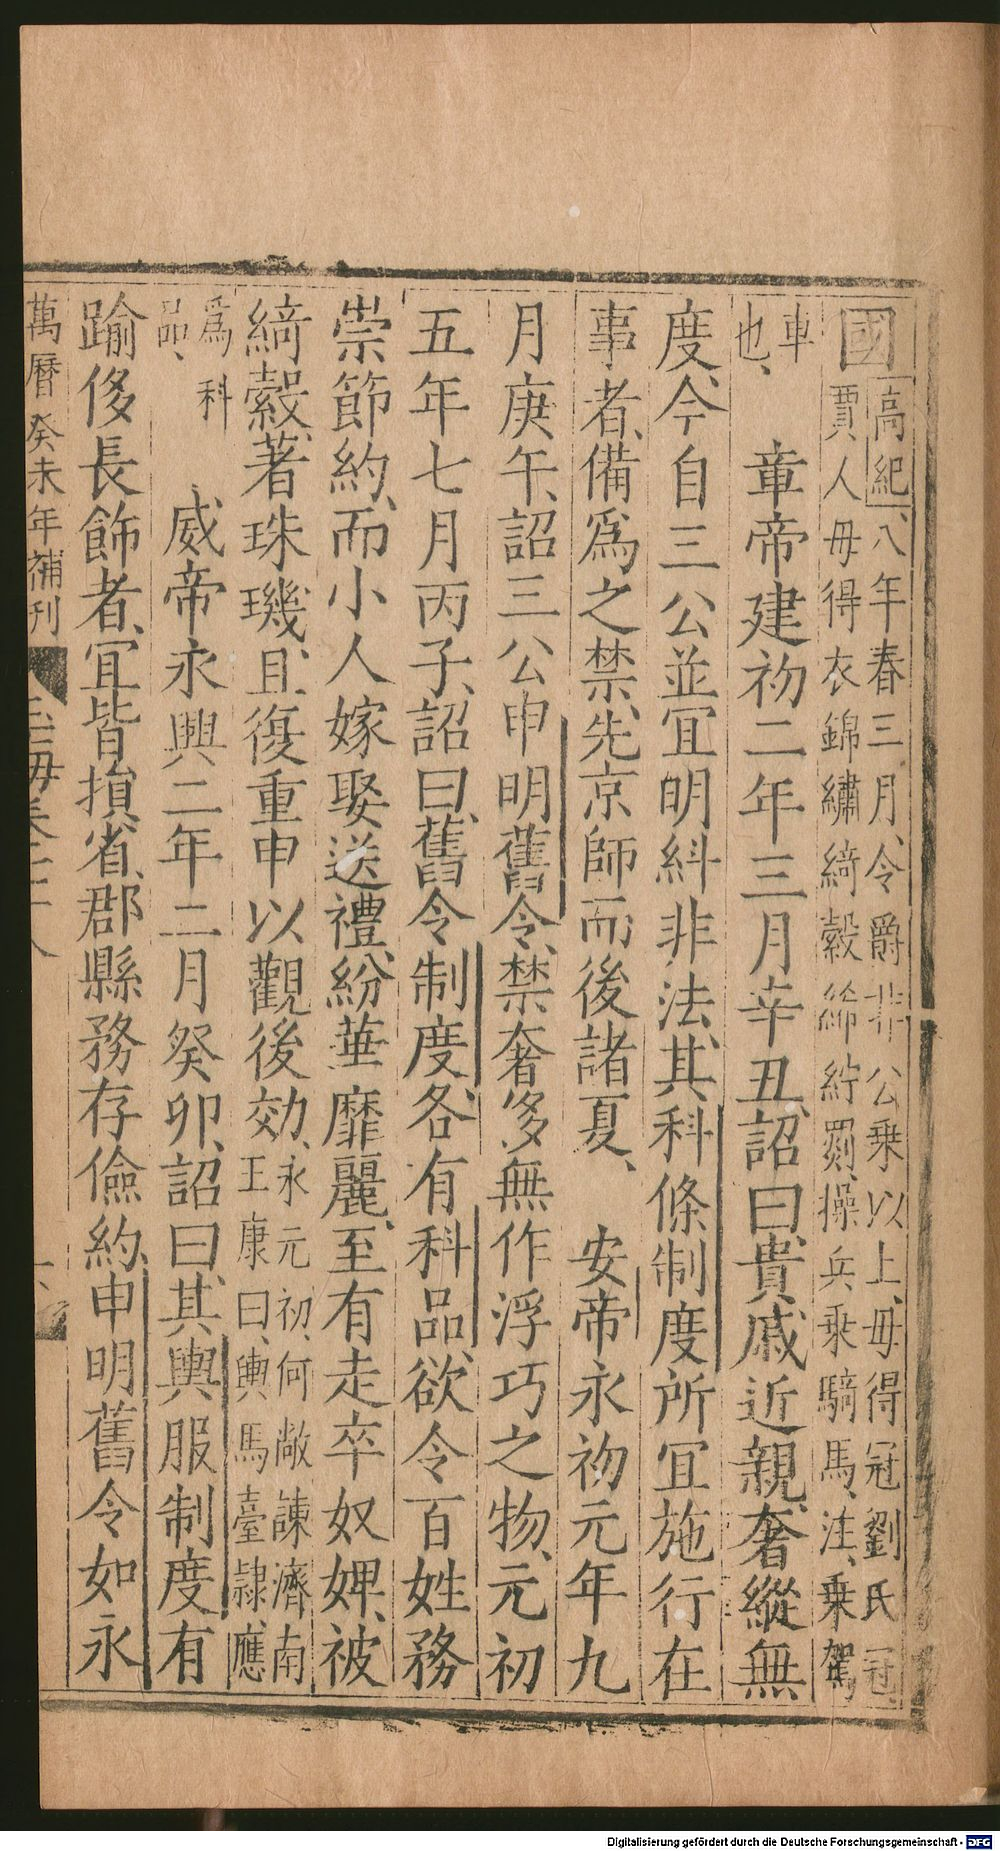 國高紀八年春三月、令爵非公乗以上、毋得冠劉氏冠、
賈人毋得衣錦繡綺縠絺紵罽、操兵乗騎馬、注、乗駕
車
也、
章帝建初二年三月辛丑、詔曰、貴戚近親、奢縱無
度、今自三公並宜明糾非法、其科條制度所宜施行在
事者、備爲之禁、先京師而後諸夏、 安帝永初元年九
月庚午、詔三公申明舊令、禁奢侈無作浮巧之物、元初
五年七月丙子、詔曰、舊令制度、各有科品、欲令百姓務
崇節約、而小人嫁娶送禮、紛華靡麗、至有走卒奴婢、被
綺縠、著珠璣、且復重申以觀後効、永元初、何敞諫濟南
王康曰、輿馬臺隷、應
爲科
品、
威帝永興二年二月癸卯、詔曰、其輿服制度有
踰侈長飾者、宜皆損省、郡縣務存儉約、申明舊令如永
萬曆癸未年補刊
玉海卷
Digitalisierung gefördert durch die Deutsche Forschungsgemeinschaft - DFG